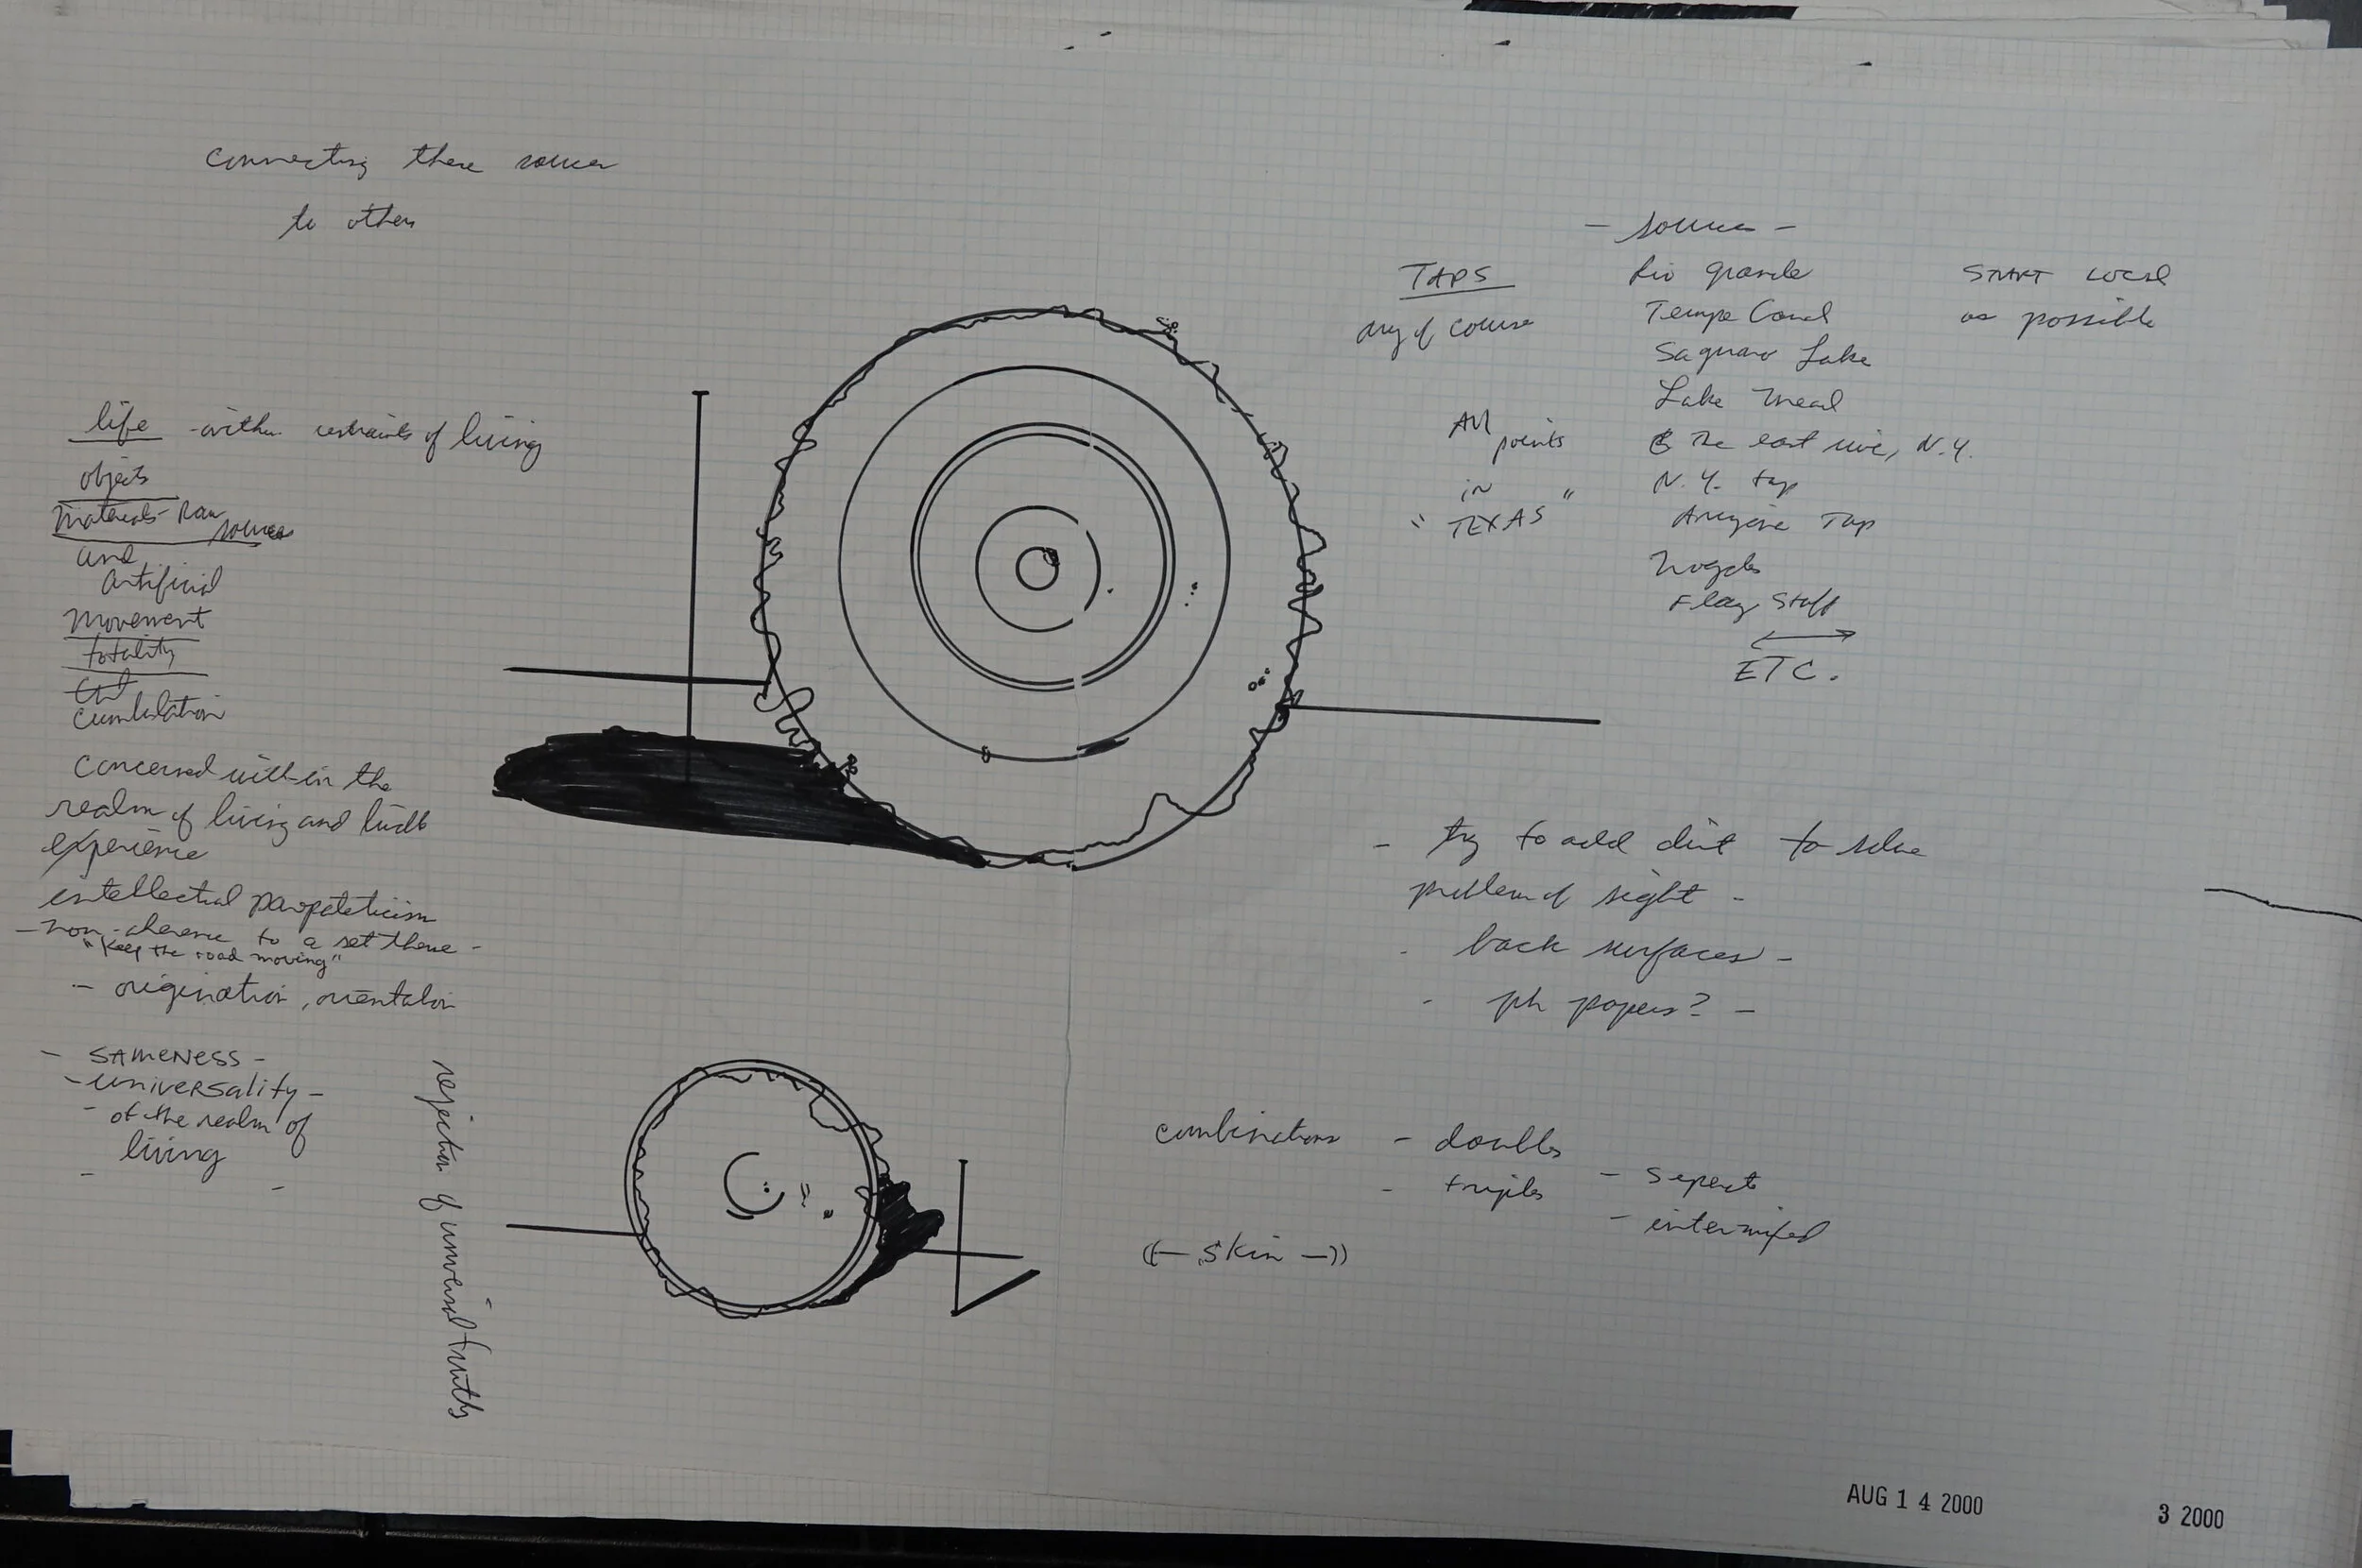 connecting these sources
to others
life - within restraints of living
objects
Materials - Raw
sources
and
artificial
Movement
totality
cumlulation
concerned within the
realm of living and
experience
intellectual
- non - to a set -
"Keep the road moving"
- origination, orientation
- SAMENESS -
- UNIVERSALITY -
- of the realm of
living
rejection of universal truths
- sources -
TAPS
any of course
All
points
in
"TEXAS"
Rio Grande
Tempe Canal
Saguaro Lake
Lake Mead
The east river, N.Y.
N.Y. tap
Tap
Nogales
Flag Staff
ETC.
START LOCAL
as possible
- try to add dirt to solve
problem of sight -
- back surfaces -
- ph papers? -
combinations - doubles
- triples - seperate
- intermixed
((- skin -))
AUG 14 2000
3 2000